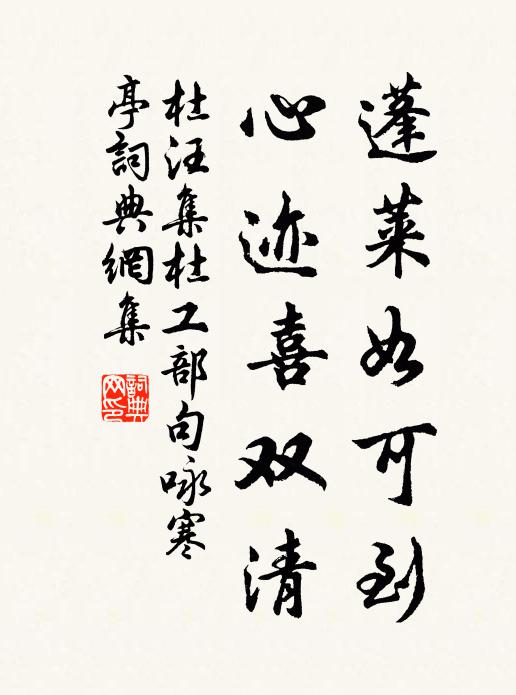 蓬莱如可到
心迹喜双清
杜汪集杜工部句咏寒
亭詞典網集
詞典
网印